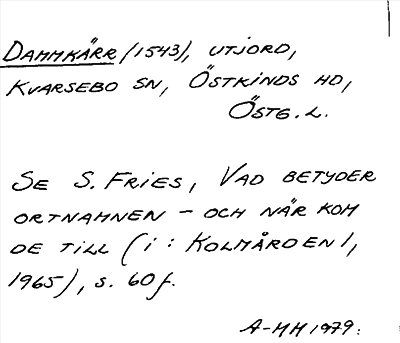 DAMMKÄRR (1543), UTJORD,
KVARSEBO SN, ÖSTKINDS HD,
ÖSTG. L.
SE S. FRIES, VAD BETYDER
ORTNAMNEN - OCH NÄR KOM
DE TILL (i: KOLMÅRDEN 1,
1965), s. 60 f.
A-MH 1979.